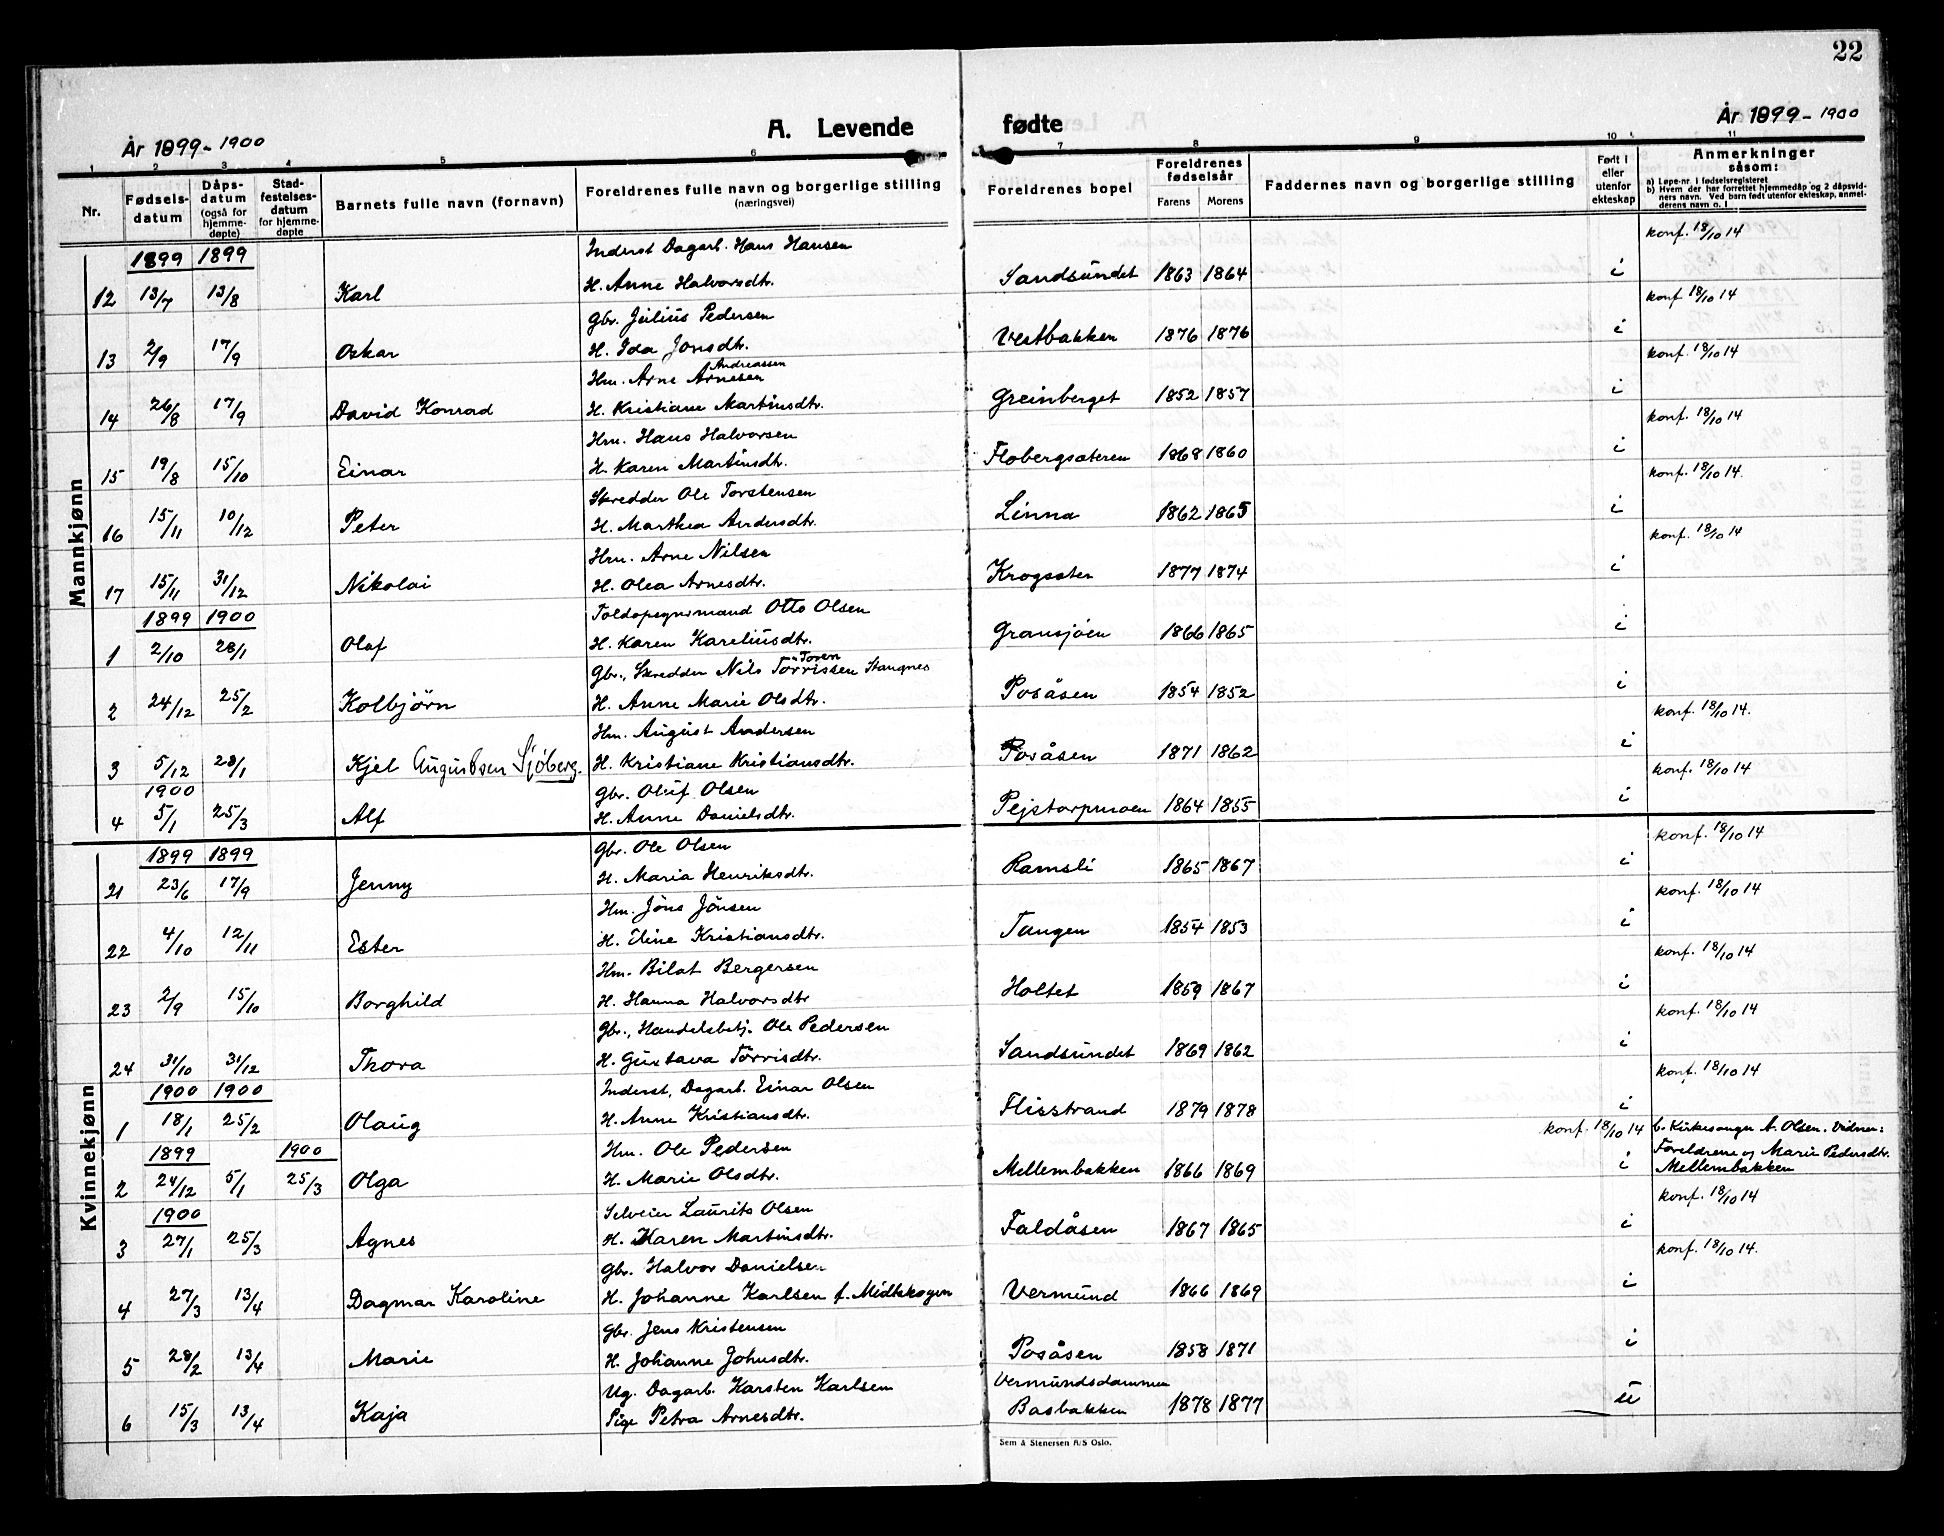 22
År 1899-1900
A. Levende
fødte
År 1899-1900
1 2 3 4 5 6 7 8 9 10 11
Nr.
Fødsels-datum
Dåps-datum (også for hjemme-døpte)
Stad-festelses-datum for hjemme-døpte
Barnets fulle navn (fornavn)
Foreldrenes fulle navn og borgerlige stilling (næringsvei)
Foreldrenes bopel
Foreldrenes fødselsår
Farens Morens
Faddernes navn og borgerlige stilling
Født i eller utenfor ekteskap
Anmerkninger såsom:
a) Løpe-nr. i fødselsregisteret
b) Hvem der har forrettet hjemmedåp og 2 dåpsvid-
ners navn. Ved barn født utenfor ekteskap, anmel-
derens navn o. l
Mannkjønn
1899 1899 Inderst Dagarb. Hans Hansen konf. 18/10 14
12 13/7 13/8 Karl H. Anne Halvorsdtr. Sandsundet 1863 1864 i
Gbr. Julius Pedersen konf 18/10 14
13 2/9 17/9 Oskar H. Ida Jonsdtr. Vestbakken 1876 1876 i
Andreassen
Hm. Arne Arnesen konf. 18/10 14
14 26/8 17/9 David Konrad H. Kristiane Martinsdtr. Greinberget 1852 1857 i
Hm. Hans Halvorsen konf. 18/10 14
15 19/8 15/10 Einar H. Karen Martinsdtr. Flobergsæteren 1868 1860 i
Skredder Ole Torstensen konf. 18/10 14.
16 15/11 10/12 Peter H. Marthea Andersdtr. Linna 1862 1865 i
Hm. Arne Nilsen konf. 18/10 14
17 15/11 31/12 Nikolai H. Olea Arnesdtr. Krogsæter 1877 1874 i
1899 1900 Toldopsynsmand Otto Olsen
1 2/10 28/1 Olaf H. Karen Kareliusdtr. Gransjøen 1866 1865 i
Toren
Gbr., Skredder Nils Törrissen Stangnes
2 24/12 25/2 Kolbjörn H. Anne Marie Olsdtr. Posåsen 1854 1852 i
Hm. August Andersen konf. 18/10 14.
3 5/12 28/1 Kjel Augustsen Sjöberg. H. Kristiane Kristiansdtr. Posåsen 1871 1862 i
1900 Gbr. Oluf Olsen konf. 18/10 14
4 5/1 25/3 Alf H. Anne Danielsdtr. Pejstorpmoen 1864 1855 i
Kvinnekjønn
1899 1899 Gbr. Ole Olsen konf. 18/10 14
21 23/6 17/9 Jenny H. Maria Henriksdtr. Ramsli 1865 1867 i
Hm. Jöns Jönsen konf. 18/10 14
22 4/10 12/11 Ester H. Eline Kristiansdtr. Tangen 1854 1853 i
Hm. Bilat Bergersen konf. 18/10 14
23 2/9 15/10 Borghild H. Hanna Halvorsdtr Holtet 1859 1867 i
Gbr., Handelsbetj. Ole Pedersen konf. 18/10 14
24 31/10 31/12 Thora H. Gustava Törrisdtr. Sandsundet 1869 1862 i
1900 1900 Inderst, Dagarb. Einar Olsen konf. 18/10 14
1 18/1 25/2 Olaug H. Anne Kristiansdtr. Flisstrand 1879 1878 i
1899 1900 Hm. Ole Pedersen konf. 18/10 14 b. Kirkesanger A. Olsen. Vidner:
2 24/12 5/1 25/3 Olga H. Marie Olsdtr. Mellembakken 1866 1869 i Foreldrene og Marie Pedersdtr.
Mellembakken
1900 Selveier Laurits Olsen konf. 18/10 14
3 27/1 25/3 Agnes H. Karen Martinsdtr. Faldåsen 1867 1865 i
Gbr. Halvor Danielsen konf. 18/10 14.
4 27/3 13/4 Dagmar Karoline H. Johanne Karlsen f. Midtskogen Vermund 1866 1869 i
Gbr. Jens Kristensen
5 28/2 13/4 Marie H. Johanne Johnsdtr. Posåsen 1858 1871 i
Ug. Dagarb. Karsten Karlsen Vermundsdammen
6 15/3 13/4 Kaja Pige Petra Arnesdtr. Basbakken 1878 1877 u
Sem & Stenersen A/S Oslo.